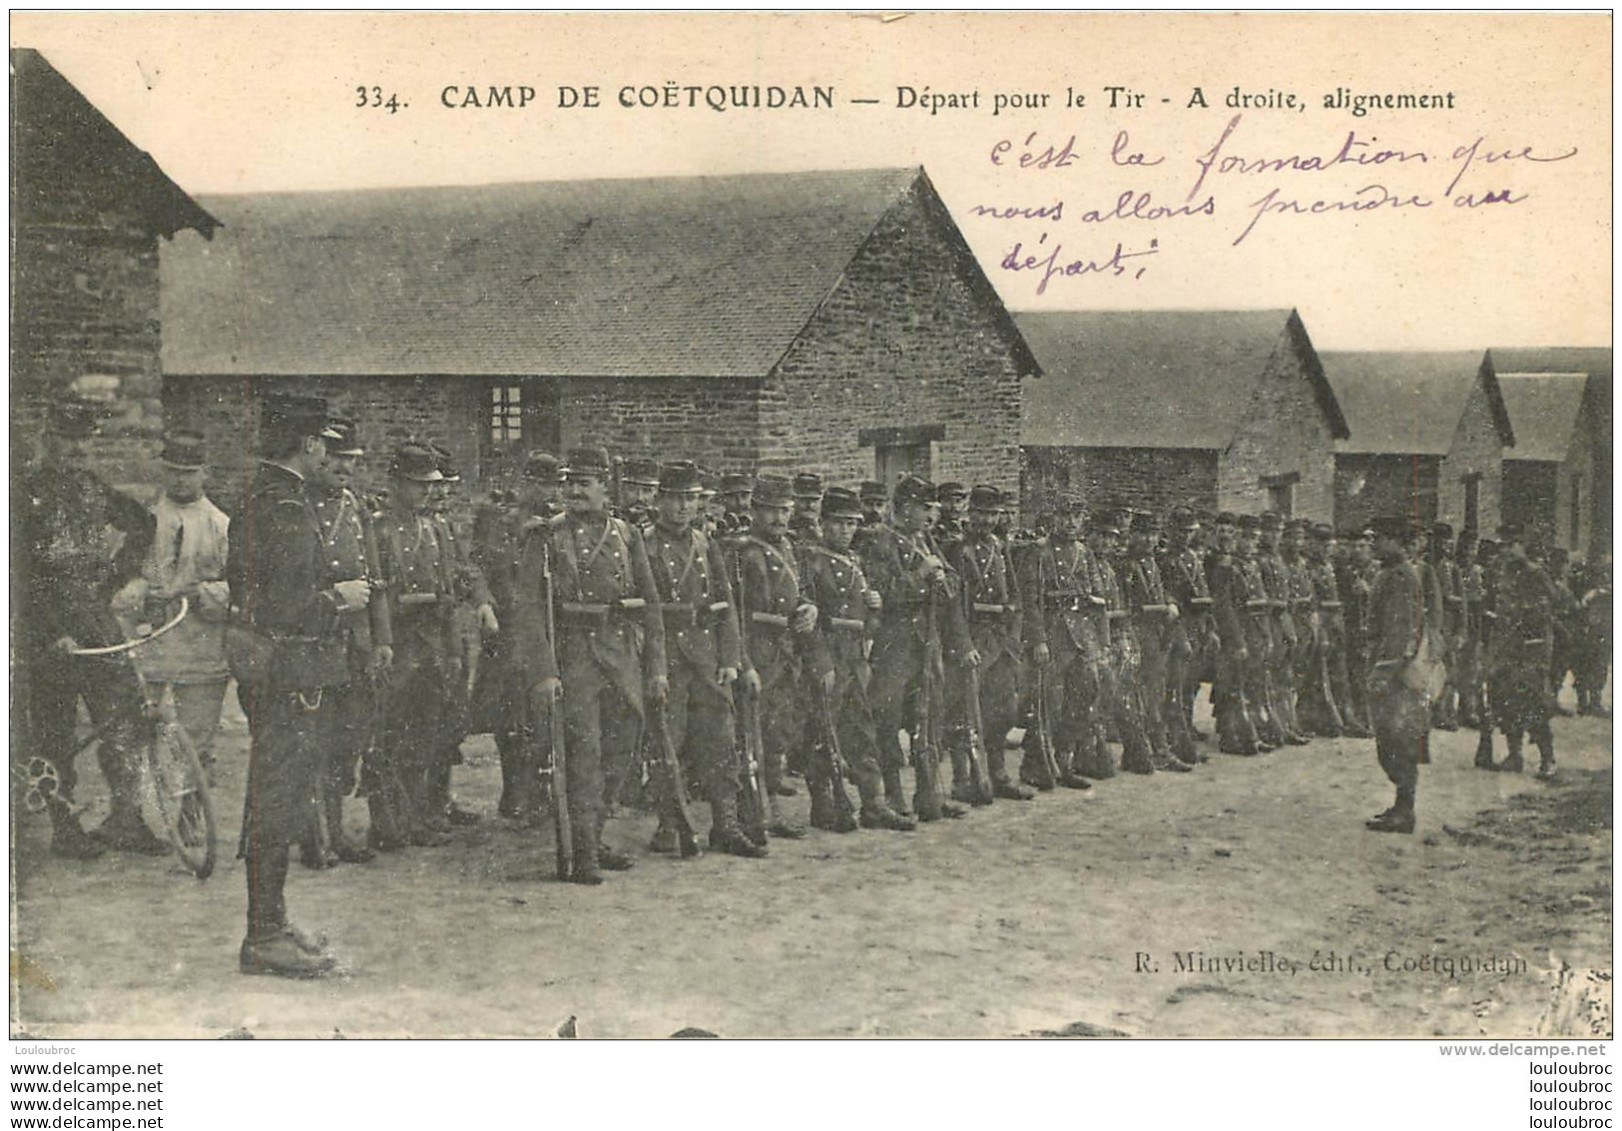 334. CAMP DE COËTQUIDAN — Départ pour le Tir - A droite, alignement
c'est la formation que
nous allons prendre au
départ.
R. Minvielle, édit., Coëtquidan
Louloubroc
www.delcampe.net
www.delcampe.net
www.delcampe.net
www.delcampe.net
www.delcampe.net
louloubroc
louloubroc
louloubroc
louloubroc